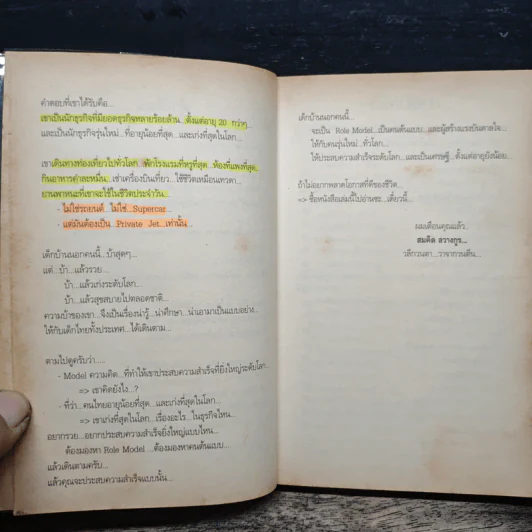 คำตอบที่เขาได้รับคือ...
เขาเป็นนักธุรกิจที่มียอดธุรกิจหลายร้อยล้าน...ตั้งแต่อายุ 20 กว่าๆ
และเป็นนักธุรกิจรุ่นใหม่...ที่อายุน้อยที่สุด...และเก่งที่สุดในโลก...
เขาเดินทางท่องเที่ยวไปทั่วโลก...พักโรงแรมที่หรูที่สุด...ห้องที่แพงที่สุด..
กินอาหารคำละหมื่น...เช่าเครื่องบินเที่ยว...ใช้ชีวิตเหมือนเทวดา...
ยานพาหนะที่เขาจะใช้ในชีวิตประจำวัน...
- ไม่ใช่รถยนต์...ไม่ใช่...Supercar...
- แต่มันต้องเป็น Private Jet...เท่านั้น...
เด็กบ้านนอกคนนี้...บ้าสุดๆ...
แต่...บ้า...แล้วรวย...
บ้า...แล้วเก่งระดับโลก...
บ้า...แล้วสุขสบายไปตลอดชาติ...
ความบ้าของเขา...จึงเป็นเรื่องน่ารู้...น่าศึกษา...น่าเอามาเป็นแบบอย่าง...
ให้กับเด็กไทยทั้งประเทศ...ได้เดินตาม...
ตามไปดูครับว่า.....
- Model ความคิด...ที่ทำให้เขาประสบความสำเร็จที่ยิ่งใหญ่ระดับโลก...
=> เขาคิดยังไง...?
- ที่ว่า...คนไทยอายุน้อยที่สุด...และเก่งที่สุดในโลก...
=> เขาเก่งที่สุดในโลก...เรื่องอะไร...ในธุรกิจไหน...
อยากรวย...อยากประสบความสำเร็จยิ่งใหญ่แบบไหน...
ต้องมองหา Role Model ...ต้องมองหาคนต้นแบบ...
แล้วเดินตามครับ...
แล้วคุณจะประสบความสำเร็จแบบนั้น...
เด็กบ้านนอกคนนี้...
จะเป็น Role Model...เป็นคนต้นแบบ...และผู้สร้างแรงบันดาลใจ...
ให้กับคนรุ่นใหม่...ทั่วโลก...
ให้ประสบความสำเร็จระดับโลก...และเป็นเศรษฐี...ตั้งแต่อายุยังน้อย...
ถ้าไม่อยากพลาดโอกาสที่ดีของชีวิต...
=> ซื้อหนังสือเล่มนี้ไปอ่านซะ...เดี๋ยวนี้...
ผมเตือนคุณแล้ว
สมคิด ลวางกูร...
วสิกวนตา...วาจากวนตีน...